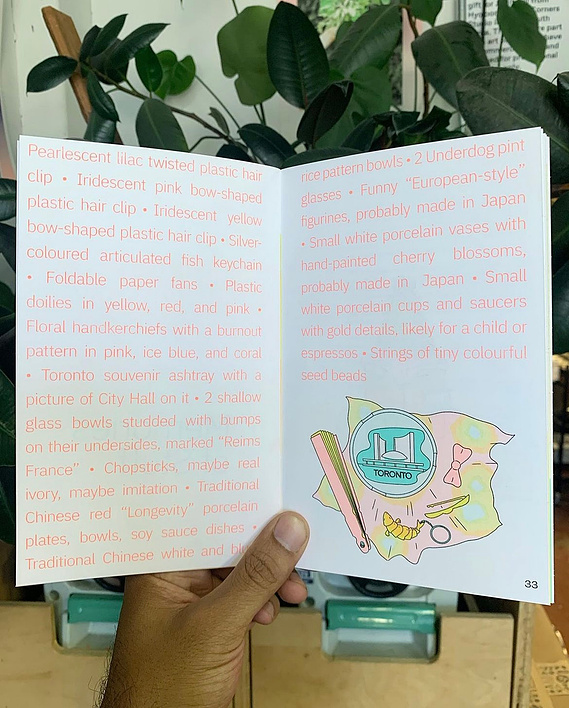 Pearlescent lilac twisted plastic hair
clip • Iridescent pink bow-shaped
plastic hair clip • Iridescent yellow
bow-shaped plastic hair clip • Silver-
coloured articulated fish keychain
• Foldable paper fans • Plastic
doilies in yellow, red, and pink •
Floral handkerchiefs with a burnout
pattern in pink, ice blue, and coral
• Toronto souvenir ashtray with a
picture of City Hall on it • 2 shallow
glass bowls studded with bumps
on their undersides, marked “Reims
France” • Chopsticks, maybe real
ivory, maybe imitation • Traditional
Chinese red “Longevity” porcelain
plates, bowls, soy sauce dishes •
Traditional Chinese white and
rice pattern bowls • 2 Underdog pint
glasses • Funny “European-style”
figurines, probably made in Japan
• Small white porcelain vases with
hand-painted cherry blossoms,
probably made in Japan • Small
white porcelain cups and saucers
with gold details, likely for a child or
espressos • Strings of tiny colourful
seed beads
TORONTO
33